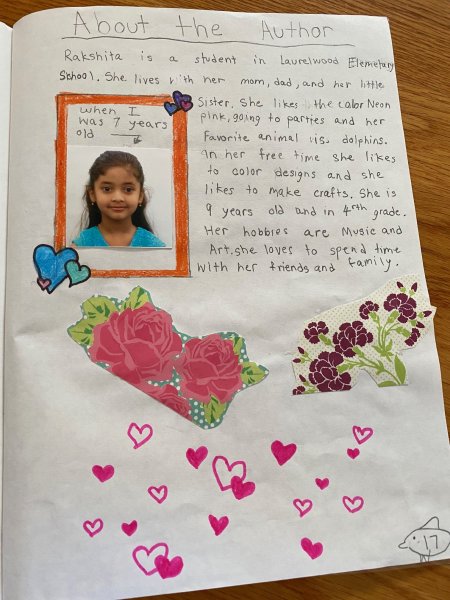 About the Author
Rakshita is a student in Laurelwood Elemetary
School. She lives with her mom, dad, and her little
sister. She likes the color Neon
pink, going to parties and her
Favorite animal is dolphins.
In her free time she likes
to color designs and she
likes to make crafts. She is
9 years old and in 4rth grade.
Her hobbies are Music and
Art. she loves to spend time
with her friends and family.
when I
was 7 years
old
17